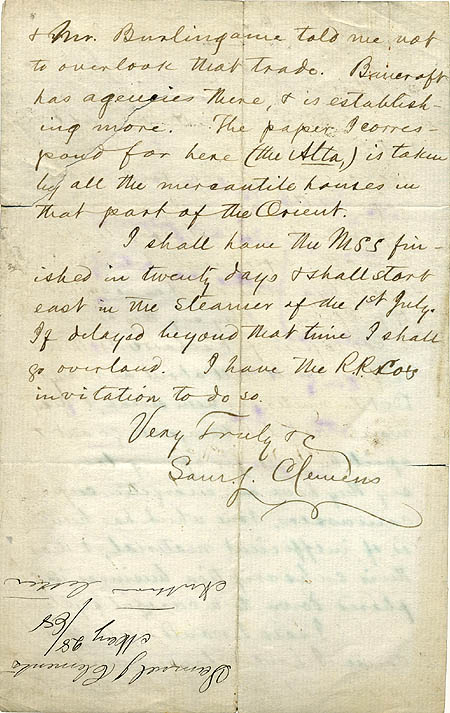 & Mr. Burlingame told me not
to overlook that trade. Bancroft
has agencies there, & is establish-
ing more. The paper I corres-
pond for here (the Alta,) is taken
by all the mercantile houses in
that part of the Orient.
I shall have the MSS fin-
ished in twenty days & shall start
east in the steamer of the 1st July.
If delayed beyond that time I shall
go overland. I have the R.R. Co's
invitation to do so.
Very Truly &c
Sam L. Clemens
Samuel Clements
May 28
/68
Author
letter